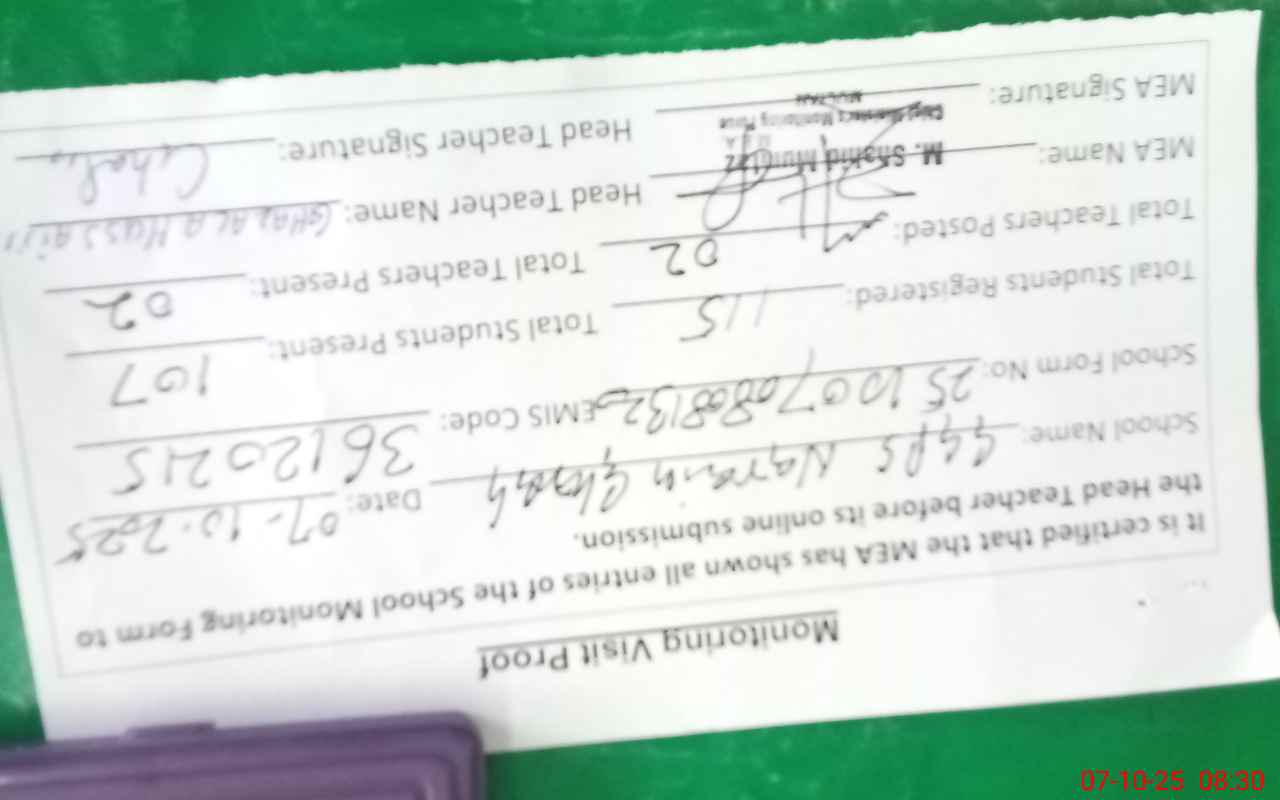 Monitoring Visit Proof
It is certified that the MEA has shown all entries of the School Monitoring Form to
the Head Teacher before its online submission.
School Name: GGPS Narain Gharh Date: 07-10-2025
School Form No: EMIS Code: 36120215
Total Students Registered: 115 Total Students Present: 107
Total Teachers Posted: 02 Total Teachers Present: 02
MEA Name: M. Shahid Mumtaz Head Teacher Name: GHAZALA HUSSAIN
MEA Signature: Head Teacher Signature:
Chief Minister's Monitoring Force
MULTAN
07-10-25 08:30